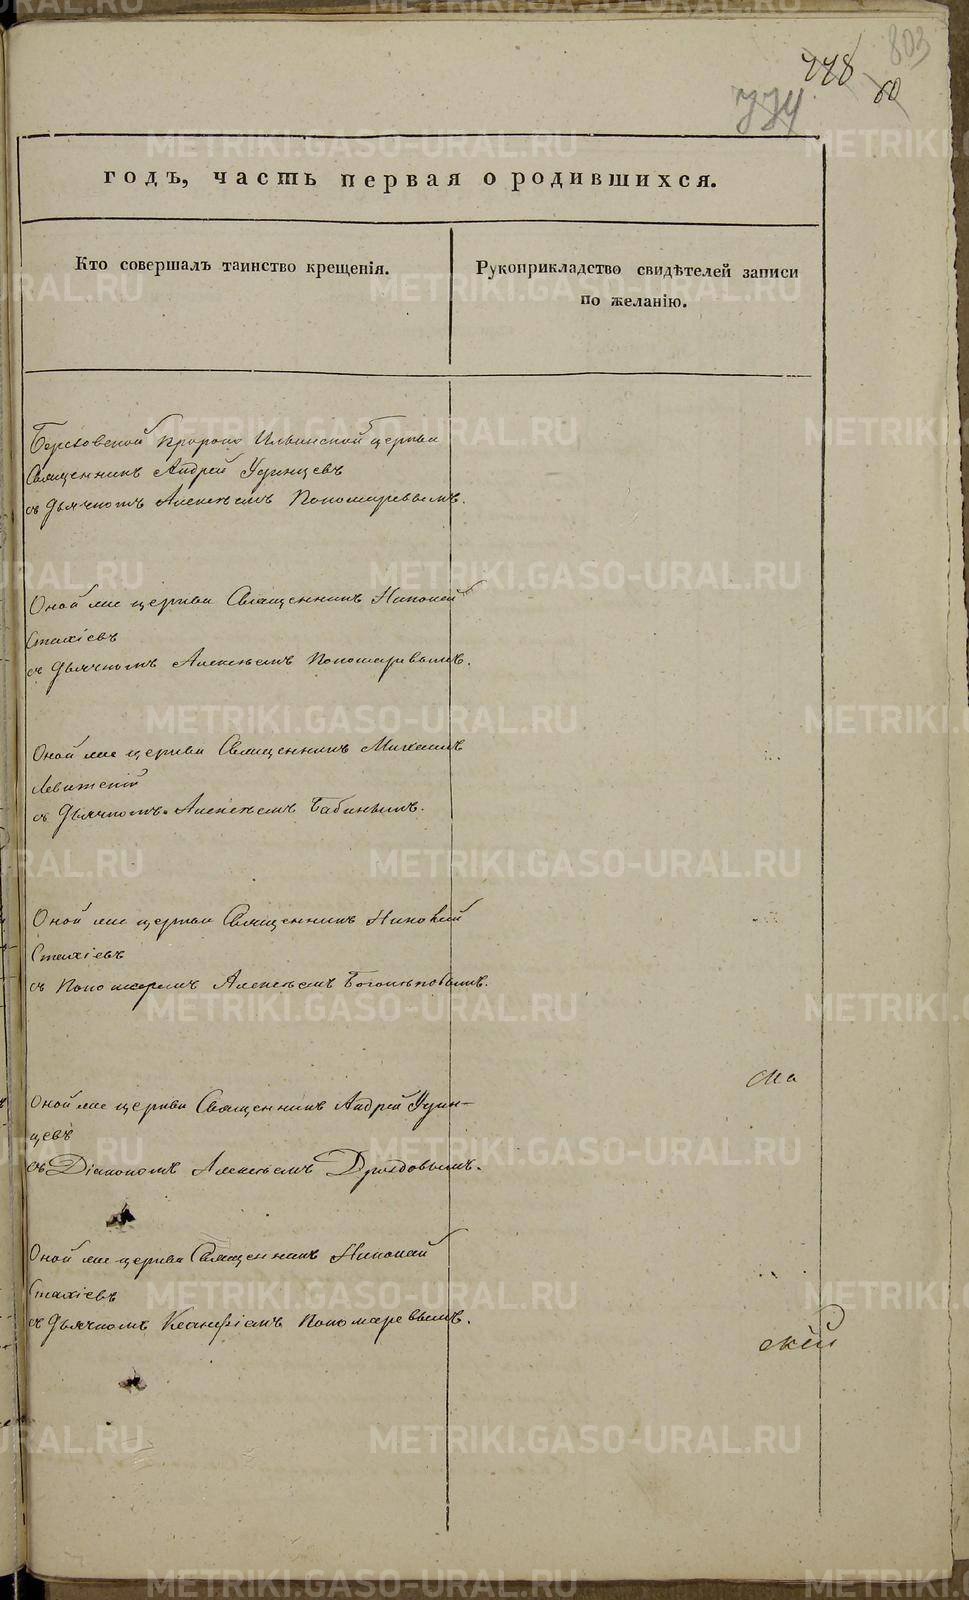 803
778
60
774
годъ, часть первая о родившихся.
Кто совершалъ таинство крещенія.
Рукоприкладство свидѣтелей записи
по желанію.
Пророко Ильинской церкви
Священникъ Андрей Удинцевъ
съ Дьячкомъ Алексѣемъ Пономаревымъ.
Оной же церкви Священникъ Николай
Стахіевъ
съ Дьячкомъ Алексѣемъ Пономаревымъ.
Оной же церкви Священникъ Михаилъ
Левитскій
съ Дьячкомъ Алексѣемъ Бабинымъ.
Оной же церкви Священникъ Николай
Стахіевъ
съ Пономаремъ Алексѣемъ Боголѣповымъ.
Оной же церкви Священникъ Андрей Удин-
цевъ
съ Діакономъ Алексѣемъ Дроздовымъ.
Оной же церкви Священникъ Николай
Стахіевъ
съ Дьячкомъ Ксанфіемъ Пономаревымъ.
скій
METRIKI.GASO-URAL.RU